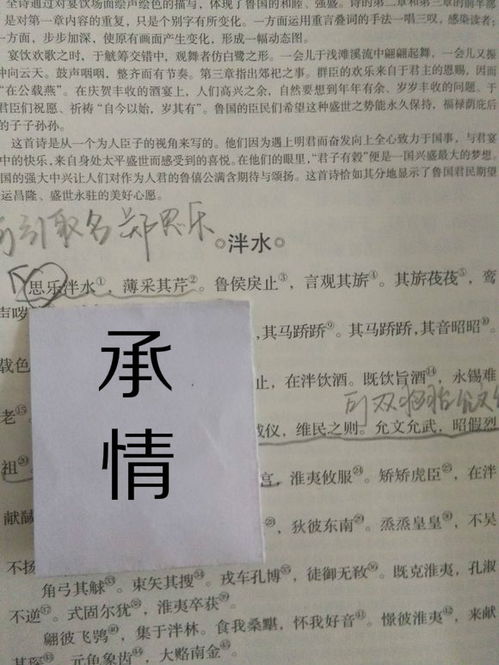 全诗通过对宴饮场面绘声绘色的描写,体现了鲁国的和睦、强盛。诗的第二章和第三章的前半部
是对第一章内容的重复,只是个别字有所变化。一方面运用重言叠词的手法一唱三叹,感染读者;
一方面,步步加深,使原有画面产生变化,形成一幅动态图。
宴饮欢歌之时,于觥筹交错中,观舞者仿白鹭之形。一会儿于浅滩溪流中翩翩起舞,一会儿又振
中向云天。鼓声咽咽,整齐而有节奏。第三章指出郊祀之事。群臣的欢乐来自于君主的恩赐,因而
“在公载燕”。在庆贺丰收的酒宴上,人们高兴之余,自然要想到年年有余、岁岁丰收的问题。于
君臣们祝愿、祈祷“自今以始,岁其有”。鲁国的臣民们希望这种盛世之势能永久保持,福禄荫庇后
的子子孙孙。
这首诗是从一个为人臣子的视角来写的。他们因为遇上明君而奋发向上全心致力于国事,与君宴
中的快乐,来自身处太平盛世而感受到的喜悦。在他们的眼里,“君子有榖”便是一国兴盛最大的梦想。
国的强大中兴让人们对作为人君的鲁僖公满含期待与颂扬。这首诗恰如其分地显示了鲁国君民期望
运昌隆、盛世永驻的美好心愿。
可引取名郑思乐
泮水
思乐泮水①,薄采其芹②。鲁侯戾止③,言观其旂④。其旂茷茷⑤,鸾
声哕
其马蹻蹻⑨。其马蹻蹻,其音昭昭⑩。
载色
止,在泮饮酒。既饮旨酒⑫,永锡难
老⑬
威仪,维民之则。允文允武,昭假烈
祖⑳
宫,淮夷攸服。矫矫虎臣,在泮
献馘
狄彼东南。烝烝皇皇,不吴
不扬
角弓其觩。束矢其搜。戎车孔博,徒御无斁。既克淮夷,孔淑
不逆。式固尔犹,淮夷卒获。
翩彼飞鸮,集于泮林。食我桑黮,怀我好音。憬彼淮夷,来献
其琛。元龟象齿,大赂南金
承
情